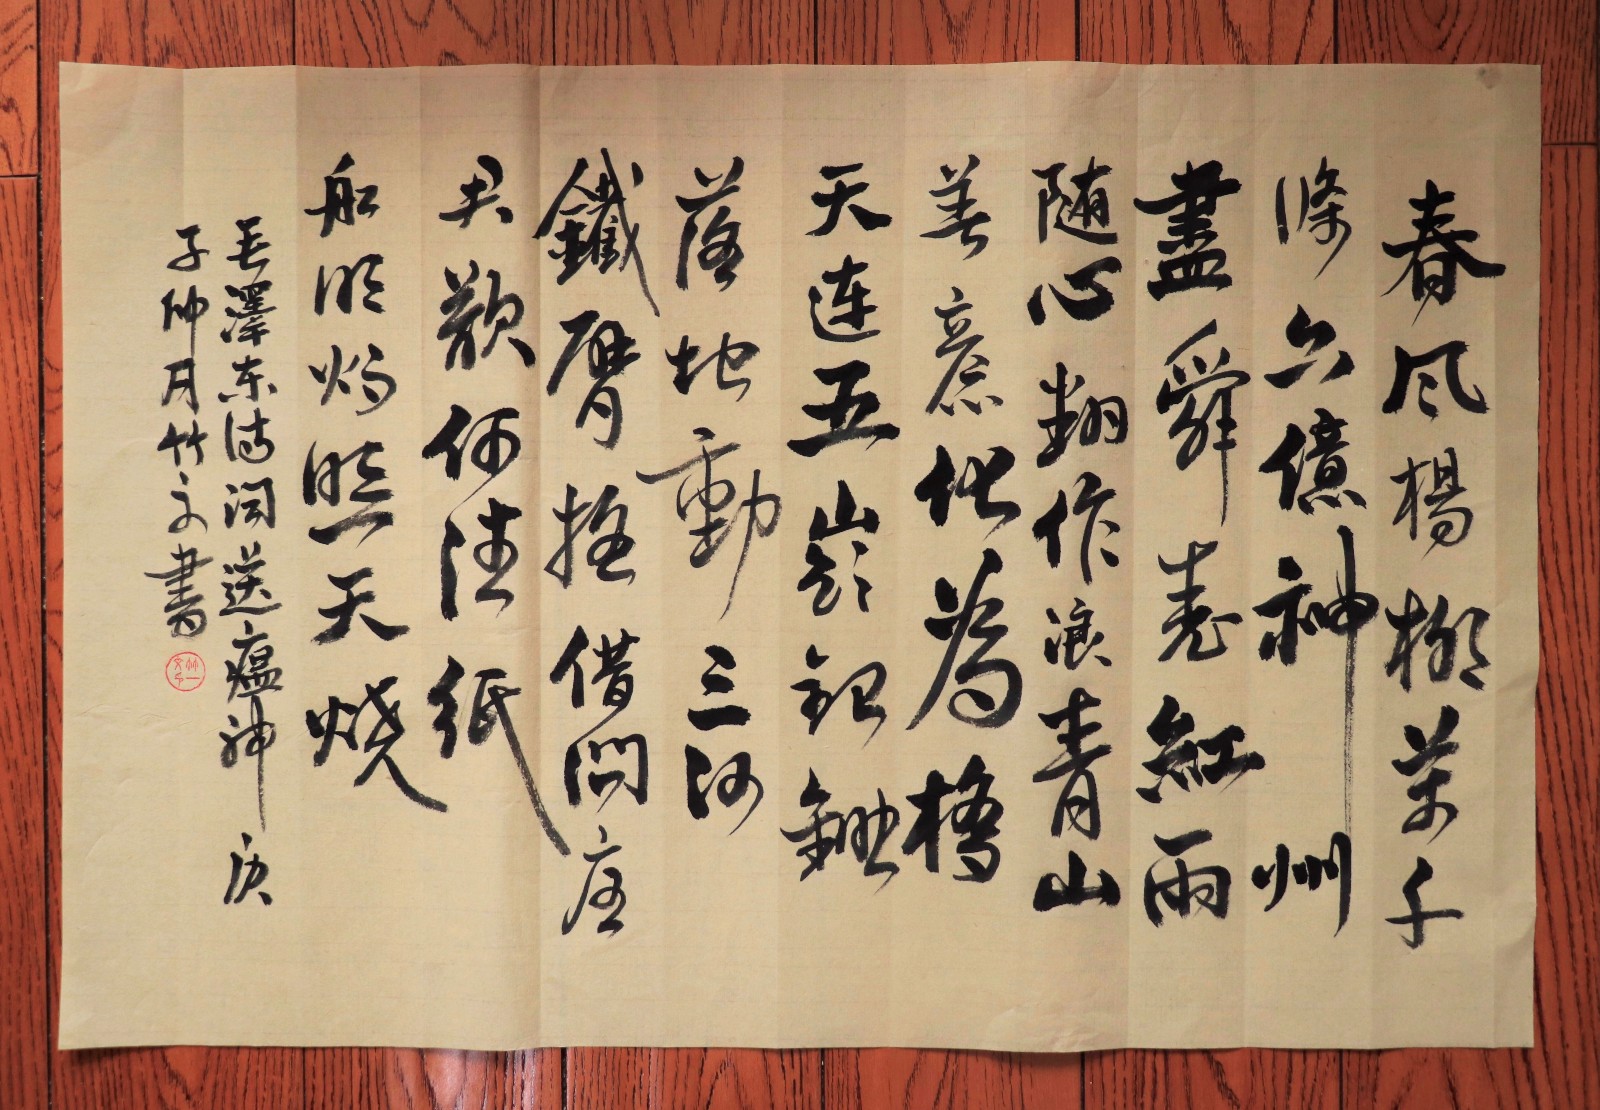 春风楊柳萬千
條六億神州
盡舜堯紅雨
随心翻作浪青山
着意化為橋
天连五嶺銀鋤
落地動三河
鐵臂摇借問瘟
君欲何往紙
船明烛照天烧
毛澤东诗词送瘟神庚
子卯月竹文書